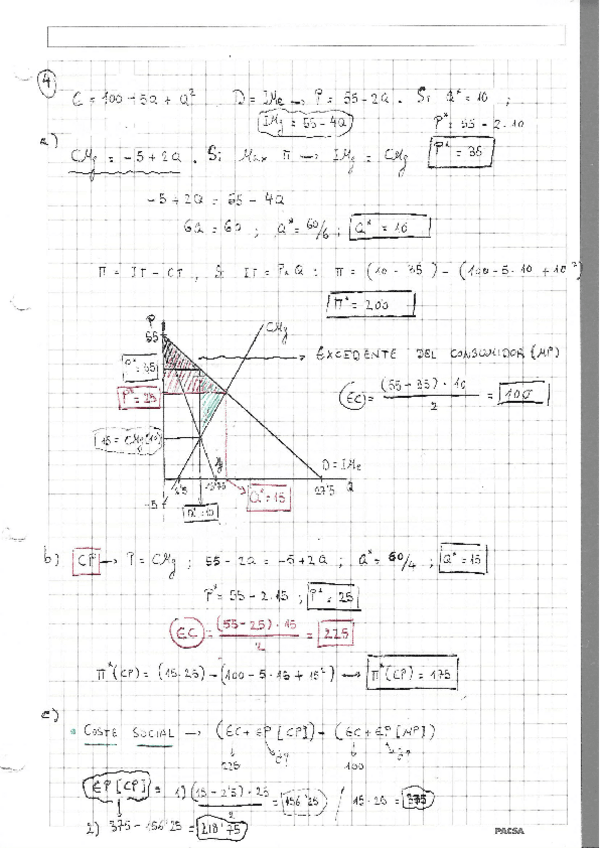 4
C = 100 - 5Q + Q² D = IMe → P = 55 - 2Q . Si Q* = 10 ;
IMg = 55 - 4Q P* = 55 - 2·10
a)
CMg = -5 + 2Q . Si Max π → IMg = CMg P* = 35
-5 + 2Q = 55 - 4Q
6Q = 60 ; Q* = 60/6 ; Q* = 10
π = IT - CT , Si IT = P·Q : π = (10 · 35) - (100 - 5·10 + 10²)
π* = 200
P
55
CMg
EXCEDENTE DEL CONSUMIDOR (MP)
P* = 35
P* = 25
EC = (55 - 35) · 10 / 2 = 100
15 = CMg(10)
D = IMe
-5
2'5
13'75
27'5
Q
Q* = 10
Q* = 15
b) CP → P = CMg ; 55 - 2Q = -5 + 2Q ; Q* = 60/4 ; Q* = 15
P* = 55 - 2·15 ; P* = 25
EC = (55 - 25) · 15 / 2 = 225
π*(CP) = (15·25) - (100 - 5·15 + 15²) → π*(CP) = 175
c)
• COSTE SOCIAL → (EC + EP [CP]) - (EC + EP [MP])
225 ¿? 100 ¿?
EP [CP] = 1) (15 - 2'5) · 25 / 2 = 156'25 / 15·25 = 375
2) 375 - 156'25 = 218'75
PACSA